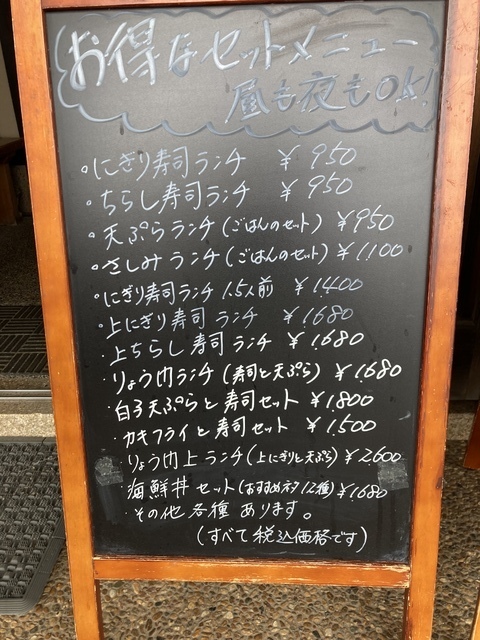 お得なセットメニュー
昼も夜もOK!
・にぎり寿司ランチ ¥950
・ちらし寿司ランチ ¥950
・天ぷらランチ(ごはんのセット) ¥950
・さしみランチ(ごはんのセット) ¥1,100
・にぎり寿司ランチ 1.5人前 ¥1,400
・上にぎり寿司ランチ ¥1,680
・上ちらし寿司ランチ ¥1,680
・りょう巾ランチ(寿司と天ぷら) ¥1,680
・白子天ぷらと寿司セット ¥1,800
・カキフライと寿司セット ¥1,500
・りょう巾上ランチ(上にぎりと天ぷら) ¥2,600
・海鮮丼セット(おすすめネタ12種) ¥1,680
・その他各種あります。
(すべて税込価格です)